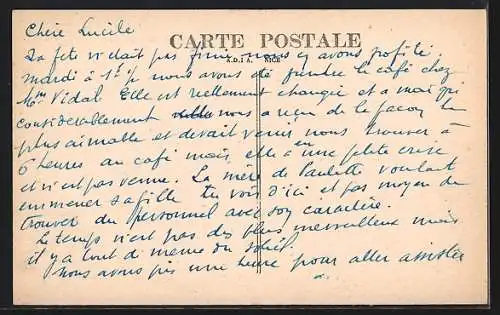 Chère Lucile
CARTE POSTALE
A.D.I.A. NICE
La fête n'était pas finie nous y avons profité.
Mardi à 1h ½ nous avons été prendre le café chez
Mme Vidal. Elle est réellement changée et a maigri
considérablement nous a reçu de la façon la
plus aimable et devait venir nous trouver à
6 heures au café mais, elle a eu une petite crise
et n'est pas venue. La mère de Paulette voulait
emmener sa fille tu vois d'ici et pas moyen de
trouver du personnel avec son caractère.
Le temps n'est pas des plus merveilleux mais
il y a tout de même du soleil.
Nous avons pris une heure pour aller assister